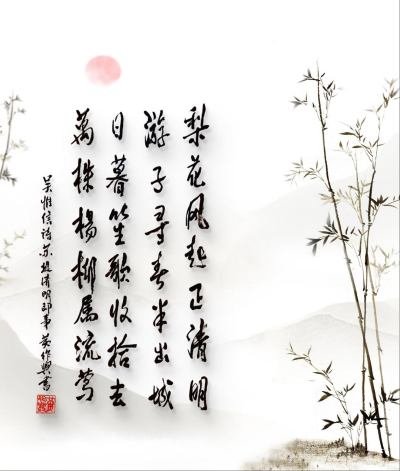 梨花风起正清明
游子寻春半出城
日暮笙歌收拾去
萬株楊柳属流莺
吴惟信诗苏堤清明即事 黄作興書